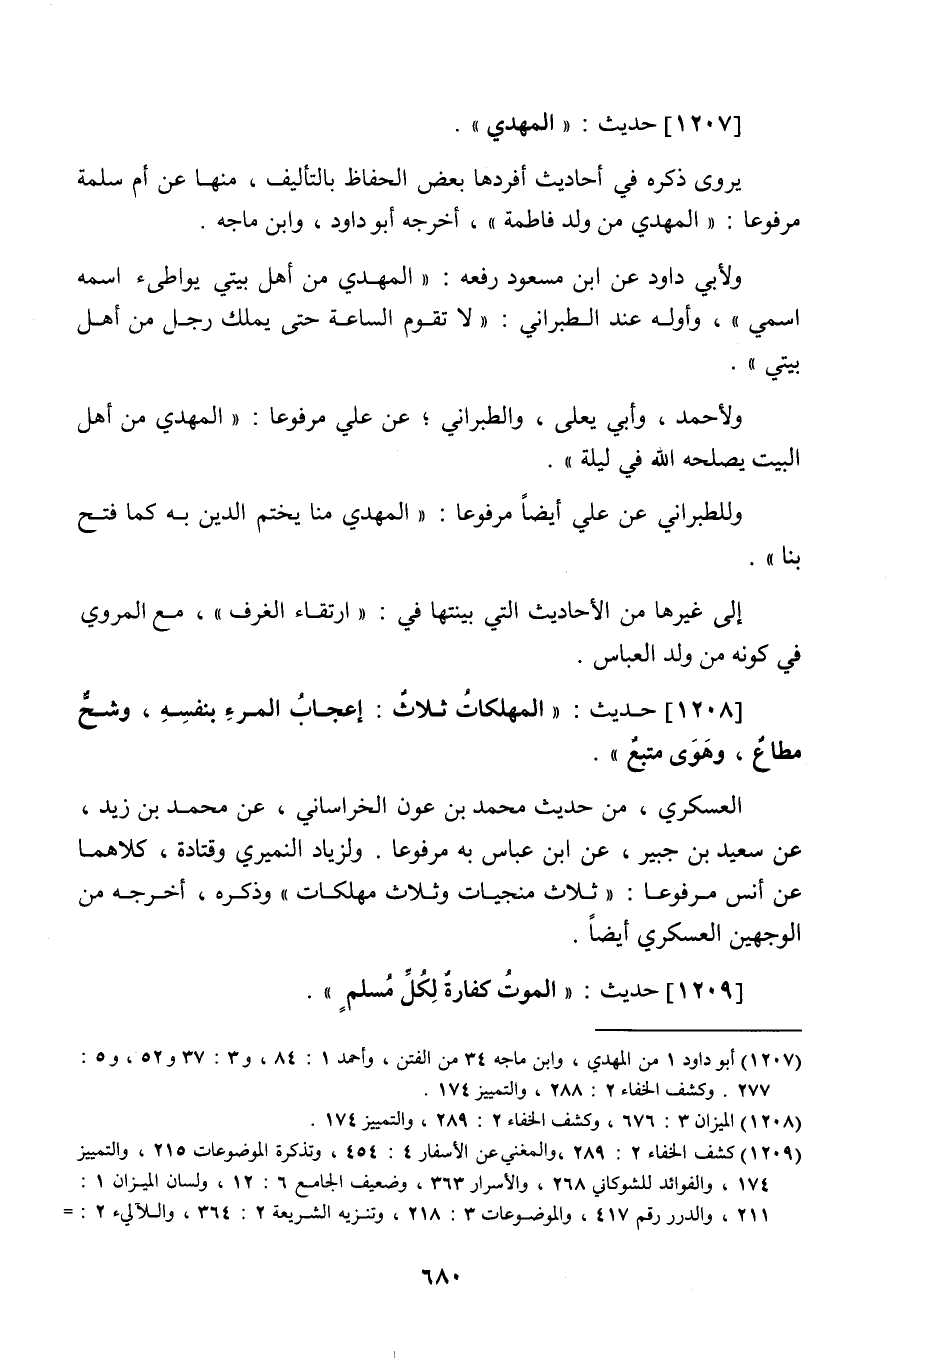 [١٢٠٧] حديث : « المهدي » .
يروى ذكره في أحاديث أفردها بعض الحفاظ بالتأليف ، منها عن أم سلمة
مرفوعا : « المهدي من ولد فاطمة » ، أخرجه أبو داود ، وابن ماجه .
ولأبي داود عن ابن مسعود رفعه : « المهدي من أهل بيتي يواطىء اسمه
اسمي » ، وأوله عند الطبراني : « لا تقوم الساعة حتى يملك رجل من أهل
بيتي » .
ولأحمد ، وأبي يعلى ، والطبراني ؛ عن علي مرفوعا : « المهدي من أهل
البيت يصلحه الله في ليلة » .
وللطبراني عن علي أيضاً مرفوعا : « المهدي منا يختم الدين به كما فتح
بنا » .
إلى غيرها من الأحاديث التي بينتها في : « ارتقاء الغرف » ، مع المروي
في كونه من ولد العباس .
[١٢٠٨] حديث : « المهلكاتُ ثلاثٌ : إعجابُ المرءِ بنفسِهِ ، وشحٌّ
مطاعٌ ، وهَوَى متبعٌ » .
العسكري ، من حديث محمد بن عون الخراساني ، عن محمد بن زيد ،
عن سعيد بن جبير ، عن ابن عباس به مرفوعا . ولزياد النميري وقتادة ، كلاهما
عن أنس مرفوعا : « ثلاث منجيات وثلاث مهلكات » وذكره ، أخرجه من
الوجهين العسكري أيضاً .
[١٢٠٩] حديث : « الموتُ كفارةٌ لِكُلِّ مُسلمٍ » .
(١٢٠٧) أبو داود ١ من المهدي ، وابن ماجه ٣٤ من الفتن ، وأحمد ١ : ٨٤ ، و٣ : ٣٧ و٥٢ ، و٥ :
٢٧٧ . وكشف الخفاء ٢ : ٢٨٨ ، والتمييز ١٧٤ .
(١٢٠٨) الميزان ٣ : ٦٧٦ ، وكشف الخفاء ٢ : ٢٨٩ ، والتمييز ١٧٤ .
(١٢٠٩) كشف الخفاء ٢ : ٢٨٩ ،والمغني عن الأسفار ٤ : ٤٥٤ ، وتذكرة الموضوعات ٢١٥ ، والتمييز
١٧٤ ، والفوائد للشوكاني ٢٦٨ ، والأسرار ٣٦٣ ، وضعيف الجامع ٦ : ١٢ ، ولسان الميزان ١ :
٢١١ ، والدرر رقم ٤١٧ ، والموضوعات ٣ : ٢١٨ ، وتنزيه الشريعة ٢ : ٣٦٤ ، واللآليء ٢ : =
٦٨٠